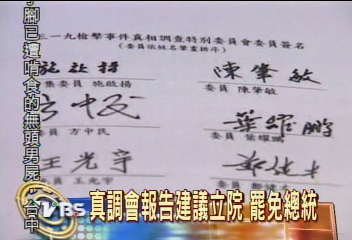 手腳已遭啃食的無頭男屍
台中
三一九槍擊事件真相調查特別委員會委員簽名
(委員依姓名筆畫排序)
施啟揚
陳肇敏
集委員 施啟揚
委員 陳肇敏
方中民
葉耀鵬
委員 方中民
委員 葉耀鵬
王光宇
委員 王光宇
TVBS
真調會報告建議立院 罷免總統